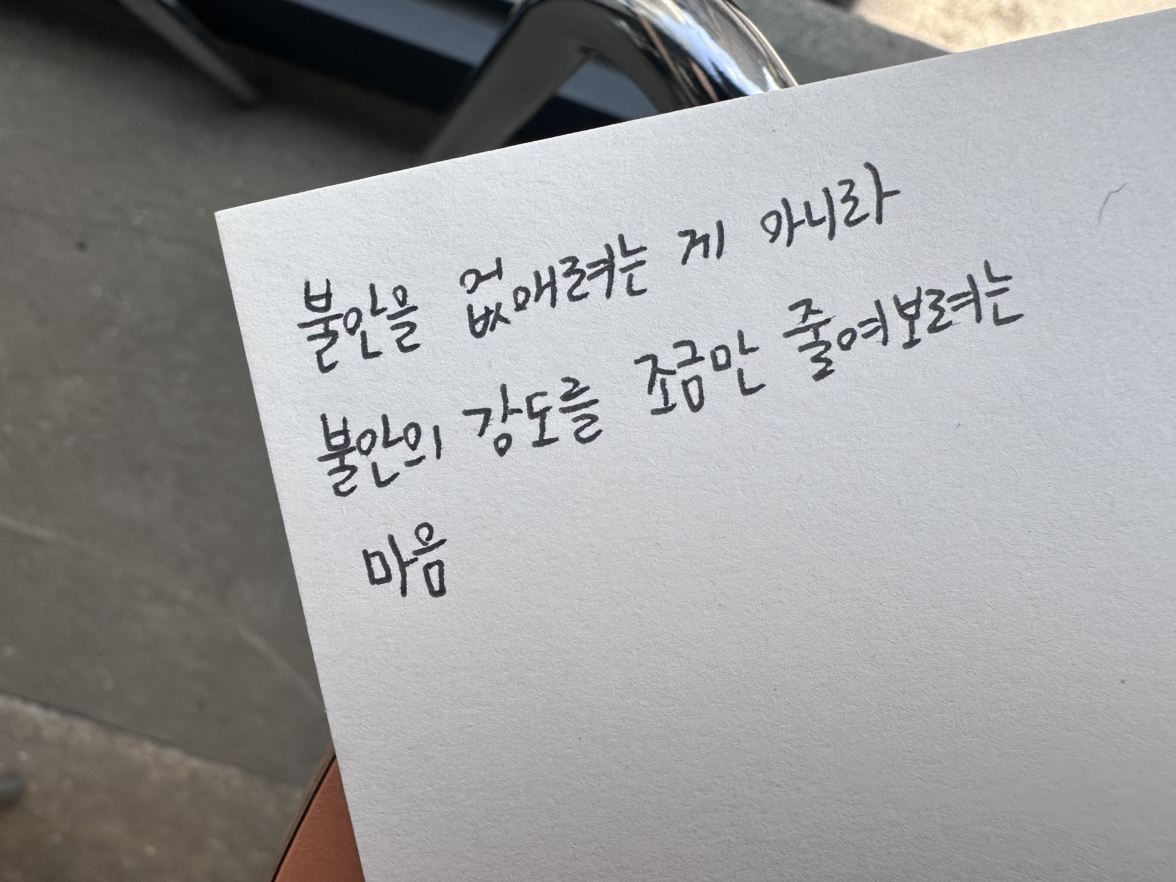 불안을 없애려는 게 아니라
불안의 강도를 조금만 줄여보려는
마음